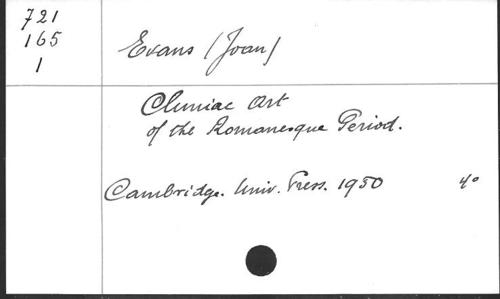 721
165
1
Evans (Joan)
Cluniac Art
of the Romanesque Period.
Cambridge. Univ. Press. 1950 4°